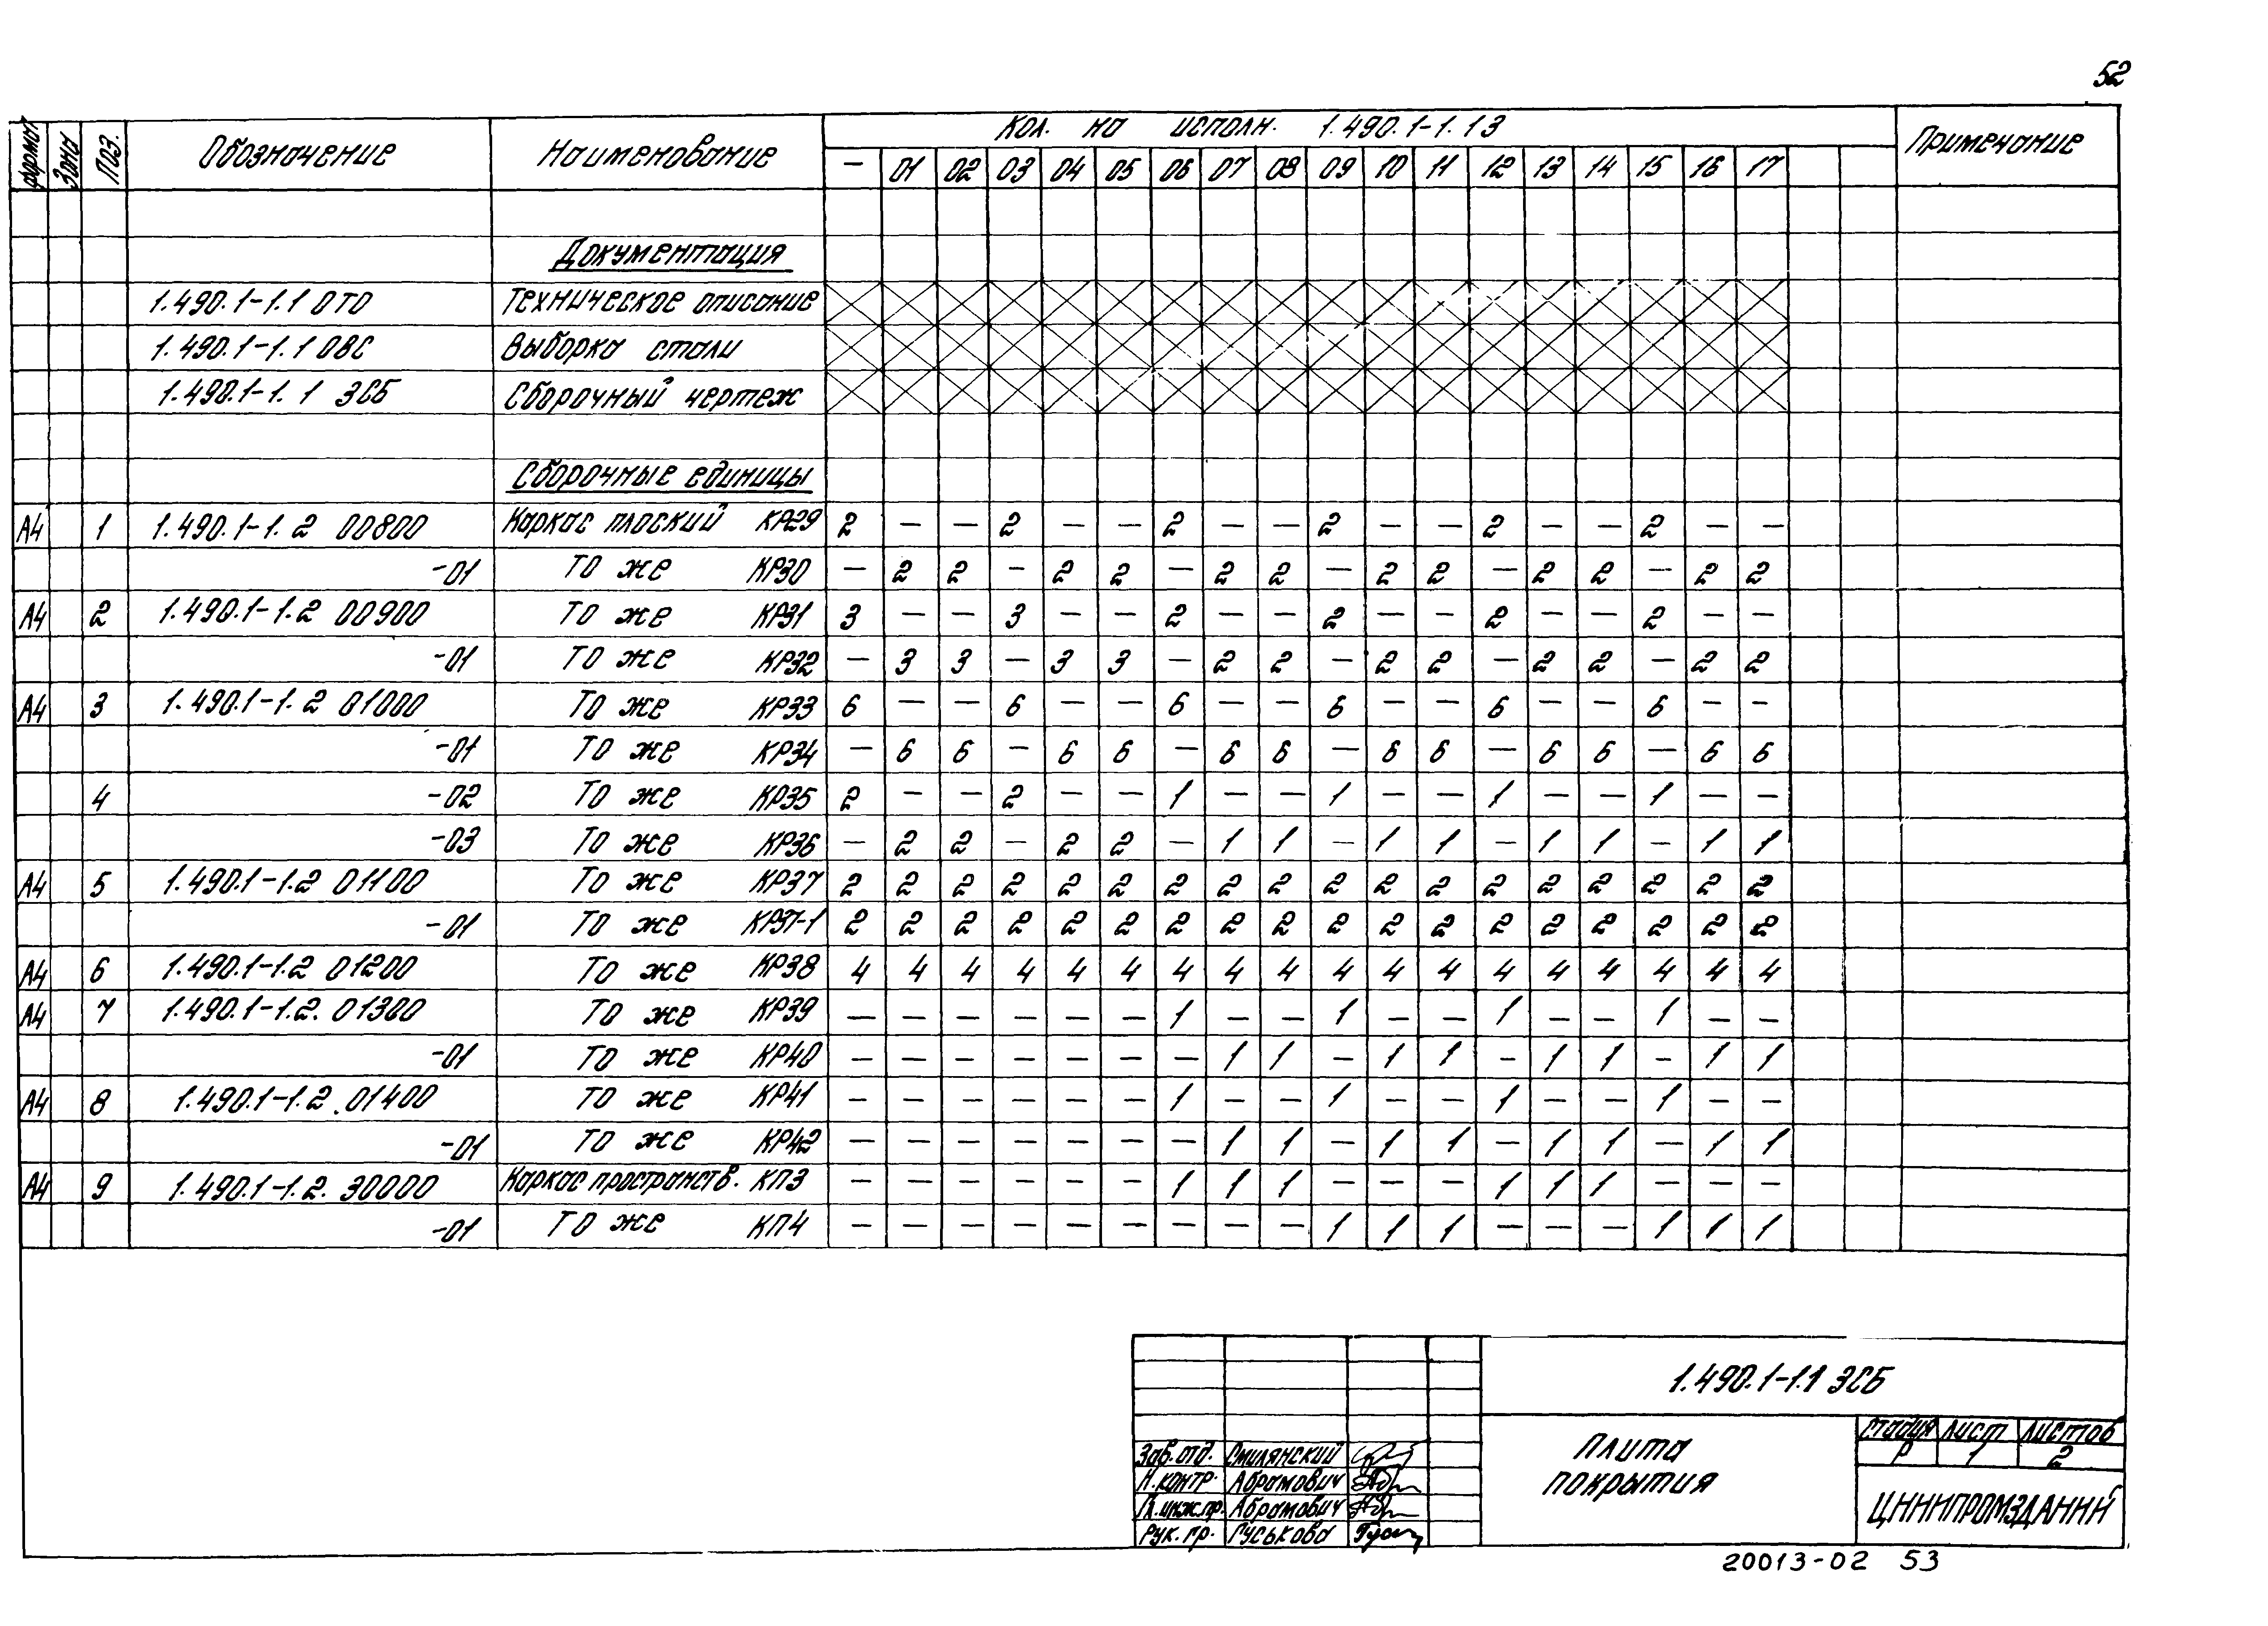 52
формат Зона Поз. Обозначение Наименование Кол. на исполн. 1.490.1-1.13 Примечание
— 01 02 03 04 05 06 07 08 09 10 11 12 13 14 15 16 17
Документация
1.490.1-1.1 0ТО Техническое описание
1.490.1-1.1 0ВС Выборка стали
1.490.1-1.1 3СБ Сборочный чертеж
Сборочные единицы
А4 1 1.490.1-1.2 00800 Каркас плоский КР29 2 — — 2 — — 2 — — 2 — — 2 — — 2 — —
-01 То же КР30 — 2 2 — 2 2 — 2 2 — 2 2 — 2 2 — 2 2
А4 2 1.490.1-1.2 00900 То же КР31 3 — — 3 — — 2 — — 2 — — 2 — — 2 — —
-01 То же КР32 — 3 3 — 3 3 — 2 2 — 2 2 — 2 2 — 2 2
А4 3 1.490.1-1.2 01000 То же КР33 6 — — 6 — — 6 — — 6 — — 6 — — 6 — —
-01 То же КР34 — 6 6 — 6 6 — 6 6 — 6 6 — 6 6 — 6 6
4 -02 То же КР35 2 — — 2 — — 1 — — 1 — — 1 — — 1 — —
-03 То же КР36 — 2 2 — 2 2 — 1 1 — 1 1 — 1 1 — 1 1
А4 5 1.490.1-1.2 01100 То же КР37 2 2 2 2 2 2 2 2 2 2 2 2 2 2 2 2 2 2
-01 То же КР37-1 2 2 2 2 2 2 2 2 2 2 2 2 2 2 2 2 2 2
А4 6 1.490.1-1.2 01200 То же КР38 4 4 4 4 4 4 4 4 4 4 4 4 4 4 4 4 4 4
А4 7 1.490.1-1.2. 01300 То же КР39 — — — — — — 1 — — 1 — — 1 — — 1 — —
-01 То же КР40 — — — — — — — 1 1 — 1 1 — 1 1 — 1 1
А4 8 1.490.1-1.2.01400 То же КР41 — — — — — — 1 — — 1 — — 1 — — 1 — —
-01 То же КР42 — — — — — — — 1 1 — 1 1 — 1 1 — 1 1
А4 9 1.490.1-1.2. 30000 Каркас пространств. КП3 — — — — — — 1 1 1 — — — 1 1 1 — — —
-01 То же КП4 — — — — — — — — — 1 1 1 — — — 1 1 1
1.490.1-1.1 3СБ
Плита
покрытия
стадия лист листов
Р 1 2
ЦНИИПРОМЗДАНИЙ
Зав. отд. Смилянский
Н. контр. Абрамович
Гл. инж. пр. Абрамович
Рук. гр. Гуськова
20013-02 53